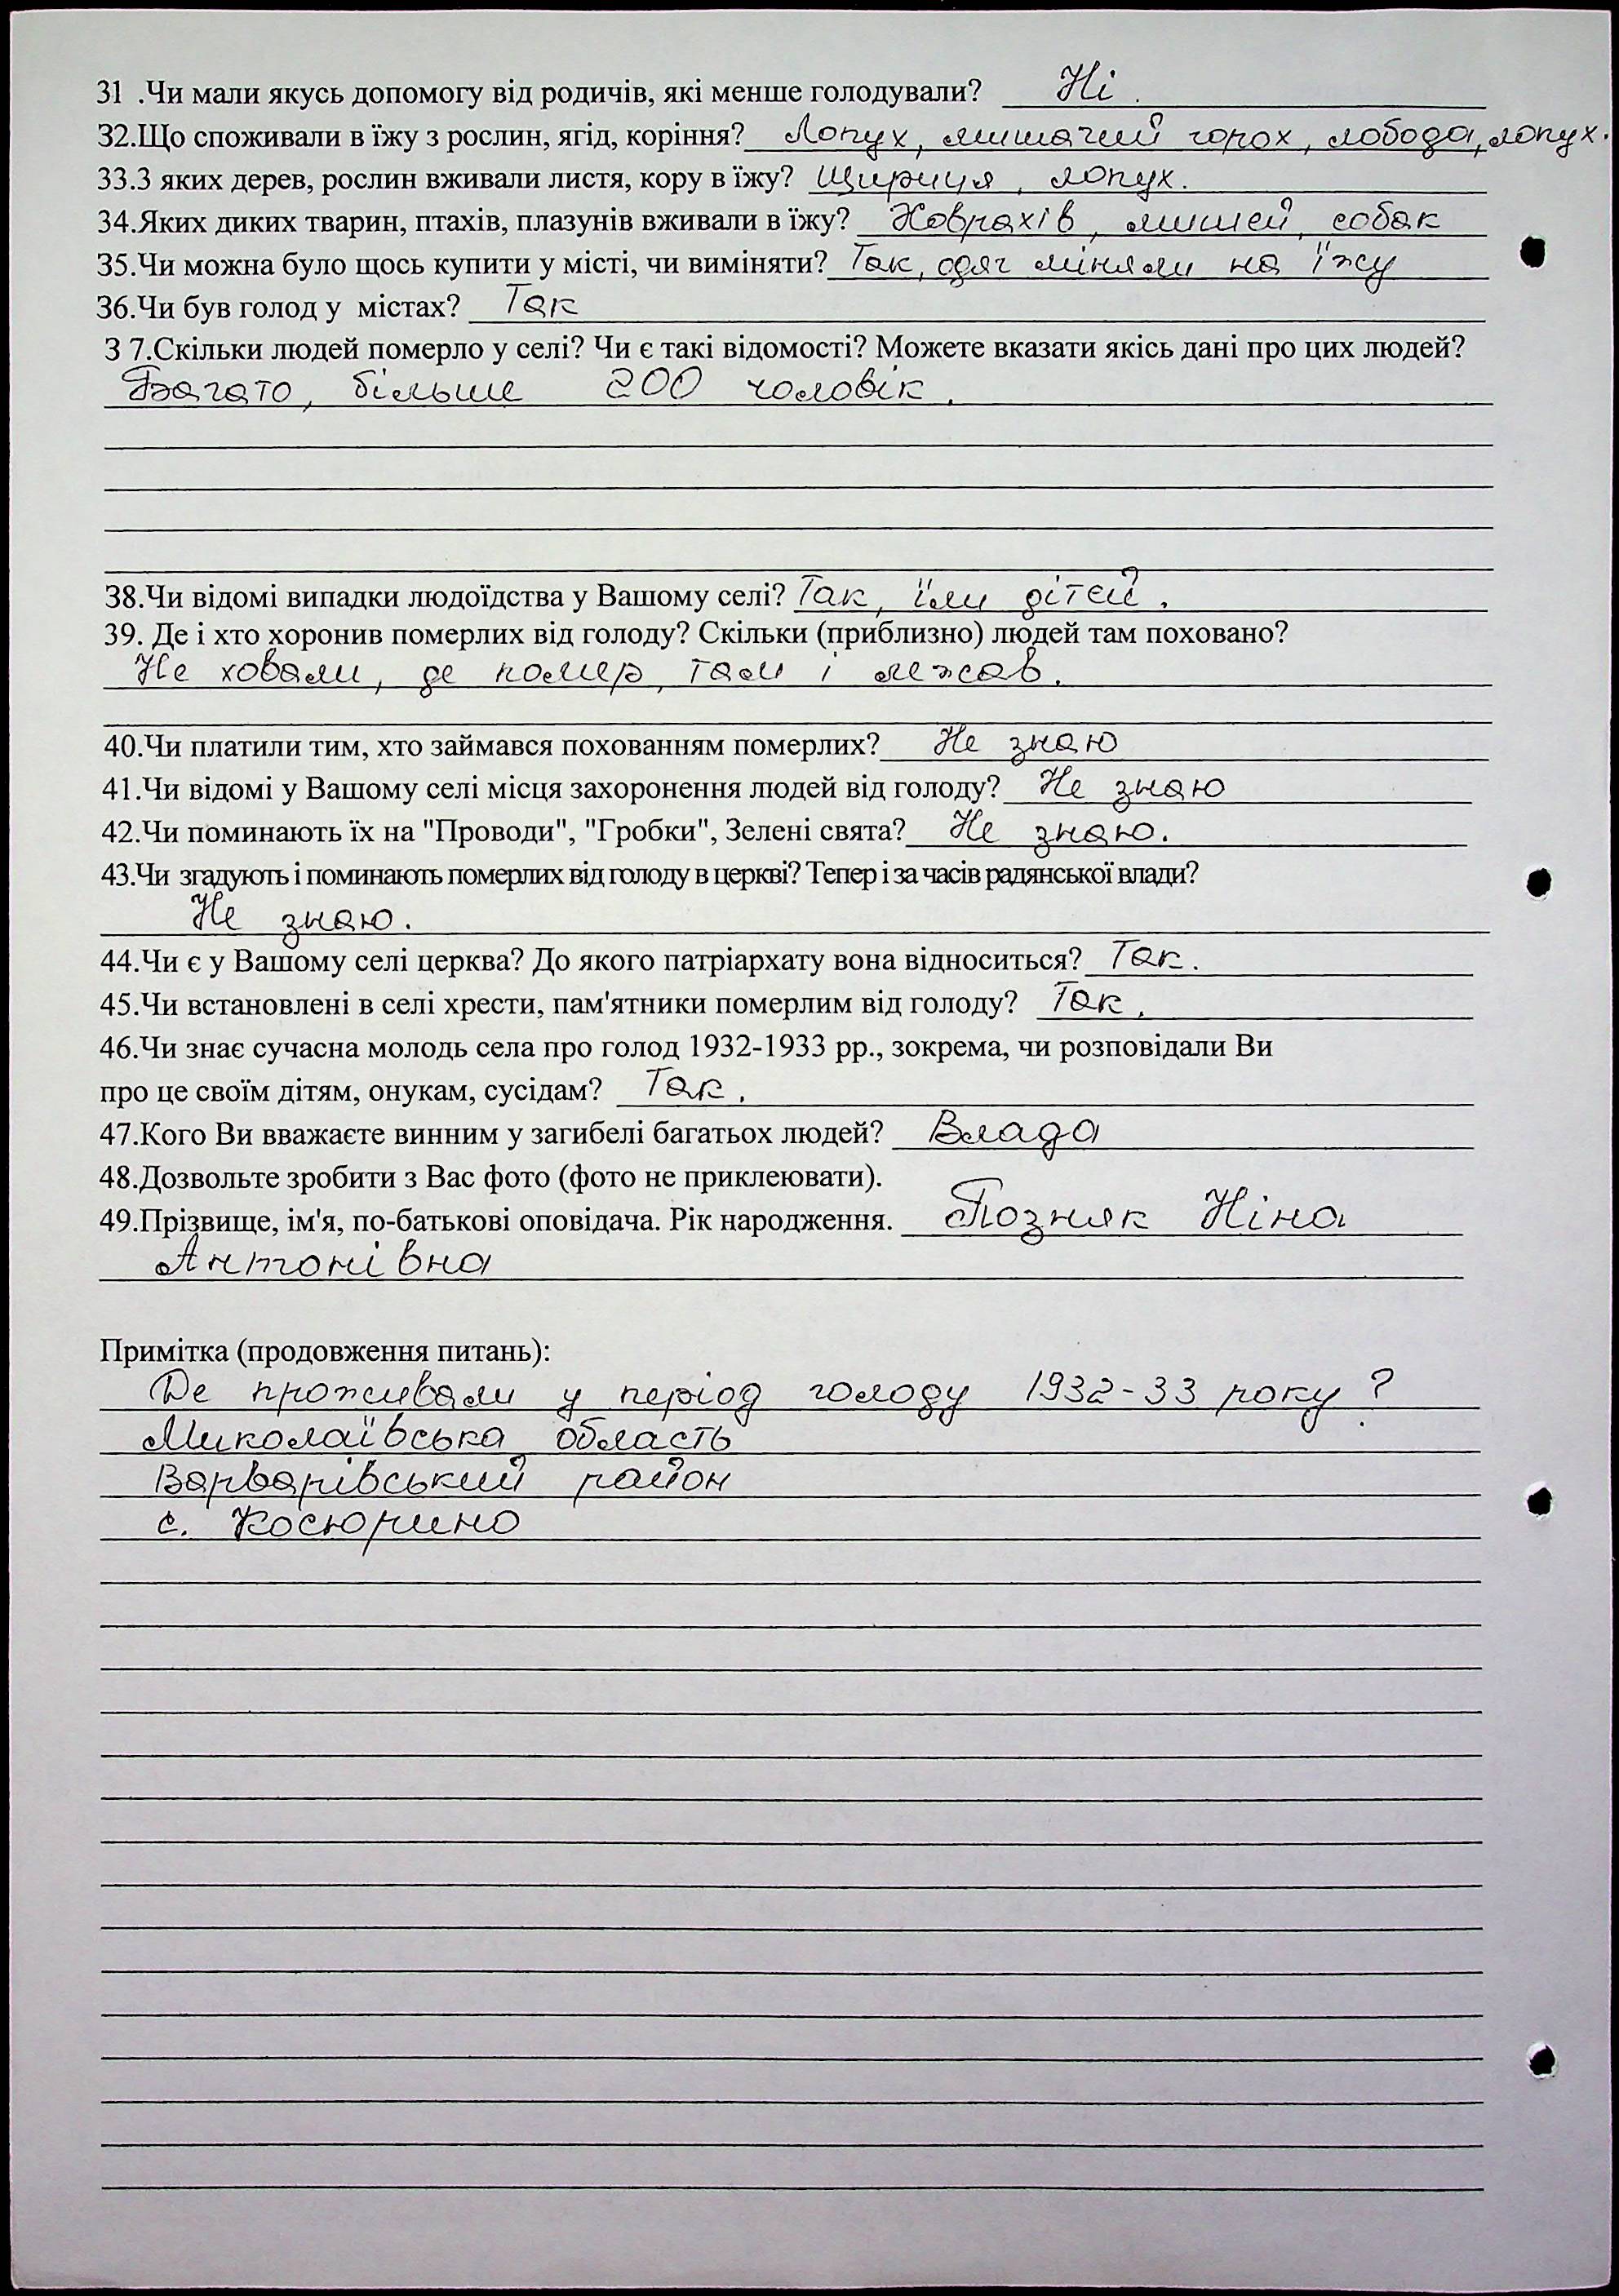 31 .Чи мали якусь допомогу від родичів, які менше голодували? Ні.
32.Що споживали в їжу з рослин, ягід, коріння? Лопух, мишачий горох, лобода, лопух.
33.З яких дерев, рослин вживали листя, кору в їжу? Щириця, лопух.
34.Яких диких тварин, птахів, плазунів вживали в їжу? Ховрахів, мишей, собак
35.Чи можна було щось купити у місті, чи виміняти? Так, одяг міняли на їжу
36.Чи був голод у містах? Так
3 7.Скільки людей померло у селі? Чи є такі відомості? Можете вказати якісь дані про цих людей?
Багато, більше 200 чоловік.
38.Чи відомі випадки людоїдства у Вашому селі? Так, їли дітей.
39. Де і хто хоронив померлих від голоду? Скільки (приблизно) людей там поховано?
Не ховали, де помер, там і лежав.
40.Чи платили тим, хто займався похованням померлих? Не знаю
41.Чи відомі у Вашому селі місця захоронення людей від голоду? Не знаю
42.Чи поминають їх на "Проводи", "Гробки", Зелені свята? Не знаю.
43.Чи згадують і поминають померлих від голоду в церкві? Тепер і за часів радянської влади?
Не знаю.
44.Чи є у Вашому селі церква? До якого патріархату вона відноситься? Так.
45.Чи встановлені в селі хрести, пам'ятники померлим від голоду? Так.
46.Чи знає сучасна молодь села про голод 1932-1933 рр., зокрема, чи розповідали Ви
про це своїм дітям, онукам, сусідам? Так.
47.Кого Ви вважаєте винним у загибелі багатьох людей? Влада
48.Дозвольте зробити з Вас фото (фото не приклеювати).
49.Прізвище, ім'я, по-батькові оповідача. Рік народження. Позняк Ніна
Антонівна
Примітка (продовження питань):
Де проживали у період голоду 1932-33 року?
Миколаївська область
Варварівський район
с. Косюрино